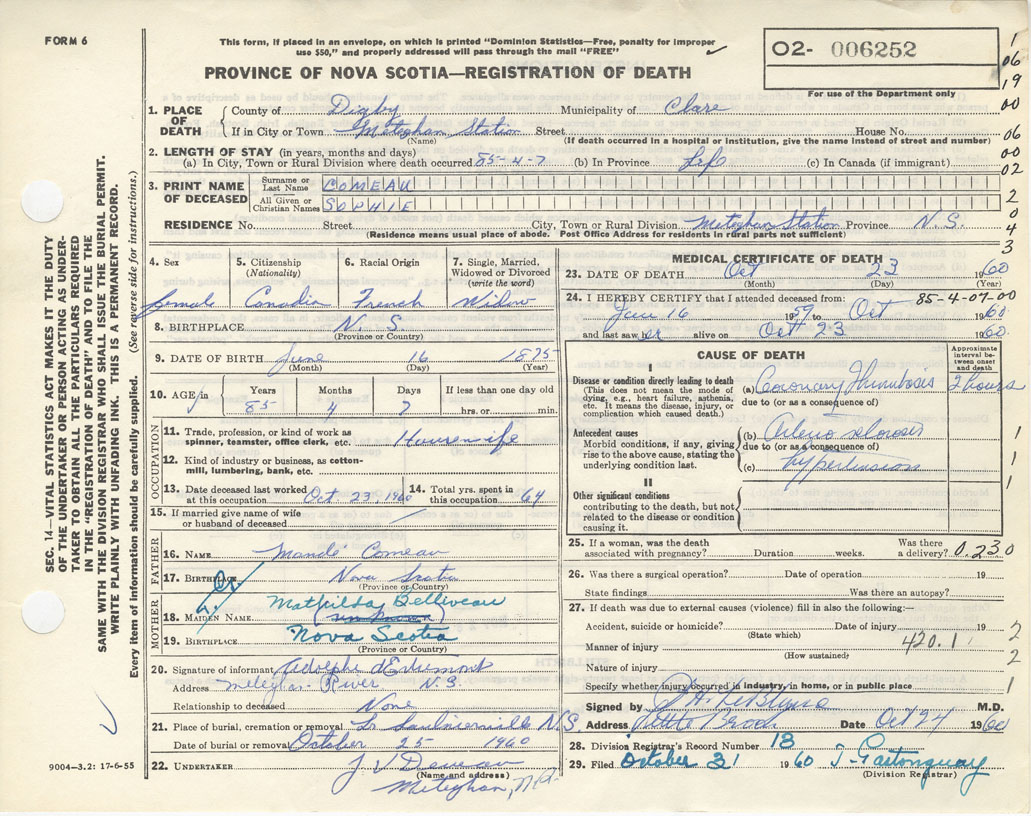 FORM 6
This form, if placed in an envelope, on which is printed "Dominion Statistics—Free, penalty for improper
use $50," and properly addressed will pass through the mail "FREE"
O2- 006252
For use of the Department only
PROVINCE OF NOVA SCOTIA—REGISTRATION OF DEATH
1. PLACE OF DEATH { County of Digby Municipality of Clare
If in City or Town Meteghan Station Street House No.
(Name) (If death occurred in a hospital or institution, give the name instead of street and number)
2. LENGTH OF STAY (in years, months and days)
(a) In City, Town or Rural Division where death occurred 85-4-7 (b) In Province Life (c) In Canada (if immigrant)
3. PRINT NAME OF DECEASED Surname or Last Name COMEAU
All Given or Christian Names SOPHIE
RESIDENCE No. Street City, Town or Rural Division Meteghan Station Province N.S.
(Residence means usual place of abode. Post Office Address for residents in rural parts not sufficient)
4. Sex female
5. Citizenship (Nationality) Canadian
6. Racial Origin French
7. Single, Married, Widowed or Divorced (write the word) Widow
8. BIRTHPLACE N. S.
(Province or Country)
9. DATE OF BIRTH June 16 1875
(Month) (Day) (Year)
10. AGE Years 85 Months 4 Days 7 If less than one day old hrs. or min.
OCCUPATION
11. Trade, profession or kind of work as spinner, teamster, office clerk, etc. Housewife
12. Kind of industry or business, as cotton-mill, lumbering, bank, etc.
13. Date deceased last worked at this occupation Oct 23 1960
14. Total yrs. spent in this occupation 64
15. If married give name of wife or husband of deceased
FATHER
16. NAME Mandé Comeau
17. BIRTHPLACE Nova Scotia
(Province or Country)
MOTHER
18. MAIDEN NAME Mathilda Belliveau
19. BIRTHPLACE Nova Scotia
(Province or Country)
20. Signature of informant Adolphe d'Entremont
Address Meteghan River N.S.
Relationship to deceased None
21. Place of burial, cremation or removal L. Saulnierville N.S.
Date of burial or removal October 25 1960
22. UNDERTAKER J V Deveau
(Name and address)
Meteghan, N.S.
MEDICAL CERTIFICATE OF DEATH
23. DATE OF DEATH Oct 23 1960
(Month) (Day) (Year)
85-4-07-00
24. I HEREBY CERTIFY that I attended deceased from:
Jan 16 1959 to Oct 1960
and last saw her alive on Oct 23 1960
CAUSE OF DEATH
Approximate interval between onset and death
I
Disease or condition directly leading to death
(This does not mean the mode of dying, e.g., heart failure, asthenia, etc. It means the disease, injury, or complication which caused death.)
(a) Coronary Thrombosis 2 hours
due to (or as a consequence of)
Antecedent causes
Morbid conditions, if any, giving rise to the above cause, stating the underlying condition last.
(b) Arterio sclerosis
due to (or as a consequence of)
(c) hypertension
II
Other significant conditions
contributing to the death, but not related to the disease or condition causing it.
25. If a woman, was the death associated with pregnancy? Duration weeks. Was there a delivery? 0.230
26. Was there a surgical operation? Date of operation 19
State findings Was there an autopsy?
27. If death was due to external causes (violence) fill in also the following:—
Accident, suicide or homicide? Date of injury 19
(State which)
Manner of injury 420.1
(How sustained)
Nature of injury
Specify whether injury occurred in industry, in home, or in public place
Signed by P.H. LeBlanc M.D.
Address Little Brook Date Oct 24 1960
28. Division Registrar's Record Number 13
29. Filed October 31 1960
(Division Registrar)
SEC. 14—VITAL STATISTICS ACT MAKES IT THE DUTY
OF THE UNDERTAKER OR PERSON ACTING AS UNDER-
TAKER TO OBTAIN ALL THE PARTICULARS REQUIRED
IN THE "REGISTRATION OF DEATH" AND TO FILE THE
SAME WITH THE DIVISION REGISTRAR WHO SHALL ISSUE THE BURIAL PERMIT.
WRITE PLAINLY WITH UNFADING INK. THIS IS A PERMANENT RECORD.
Every item of information should be carefully supplied. (See reverse side for instructions.)
9004—3.2: 17-6-55
1
06
19
00
06
00
02
2
0
4
3
1
1
1
2
2
1